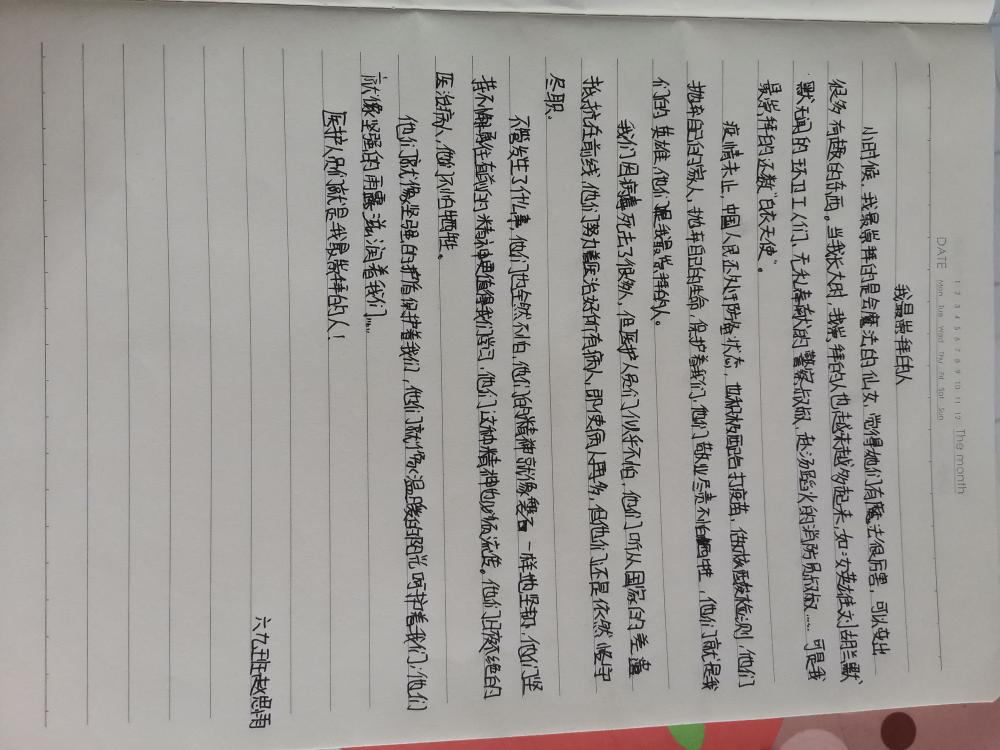 1 2 3 4 5 6 7 8 9 10 11 12 The month
DATE Mon Tue Wed Thu Fri Sat Sun
我最崇拜的人
小时候,我最崇拜的是会魔法的仙女,觉得她们有魔法很厉害,可以变出
很多有趣的东西。当我长大时,我崇拜的人也越来越多起来,如:女英雄刘胡兰默
默无闻的环卫工人们、无私奉献的警察叔叔、赴汤蹈火的消防员叔叔……可是我
最崇拜的还数“白衣天使”。
疫情未止,中国人民还处于防备状态,也积极配合打疫苗,做核酸检测,他们
抛弃自己的家人,抛弃自己的生命,保护着我们,他们敬业尽责不怕牺牲,他们就是我
们的英雄,他们是我最崇拜的人。
我们因病毒死去了很多人,但医护人员们似乎不怕,他们听从国家的差遣
抵抗在前线,他们努力医治好所有病人,即使病人再多,但他们还是依然坚守
尽职。
不管发生了什么事,他们也全然不怕,他们的精神就像磐石一样地坚韧,他们坚
持不懈勇往直前的精神更值得我们学习,他们这种精神也必须流传。他们日夜不绝的
医治病人,他们不怕牺牲。
他们就像坚强的护盾保护着我们,他们就像温暖的阳光呵护着我们;他们
就像坚强的雨露滋润着我们……
医护人员们就是我最崇拜的人!
六九班赵思雨